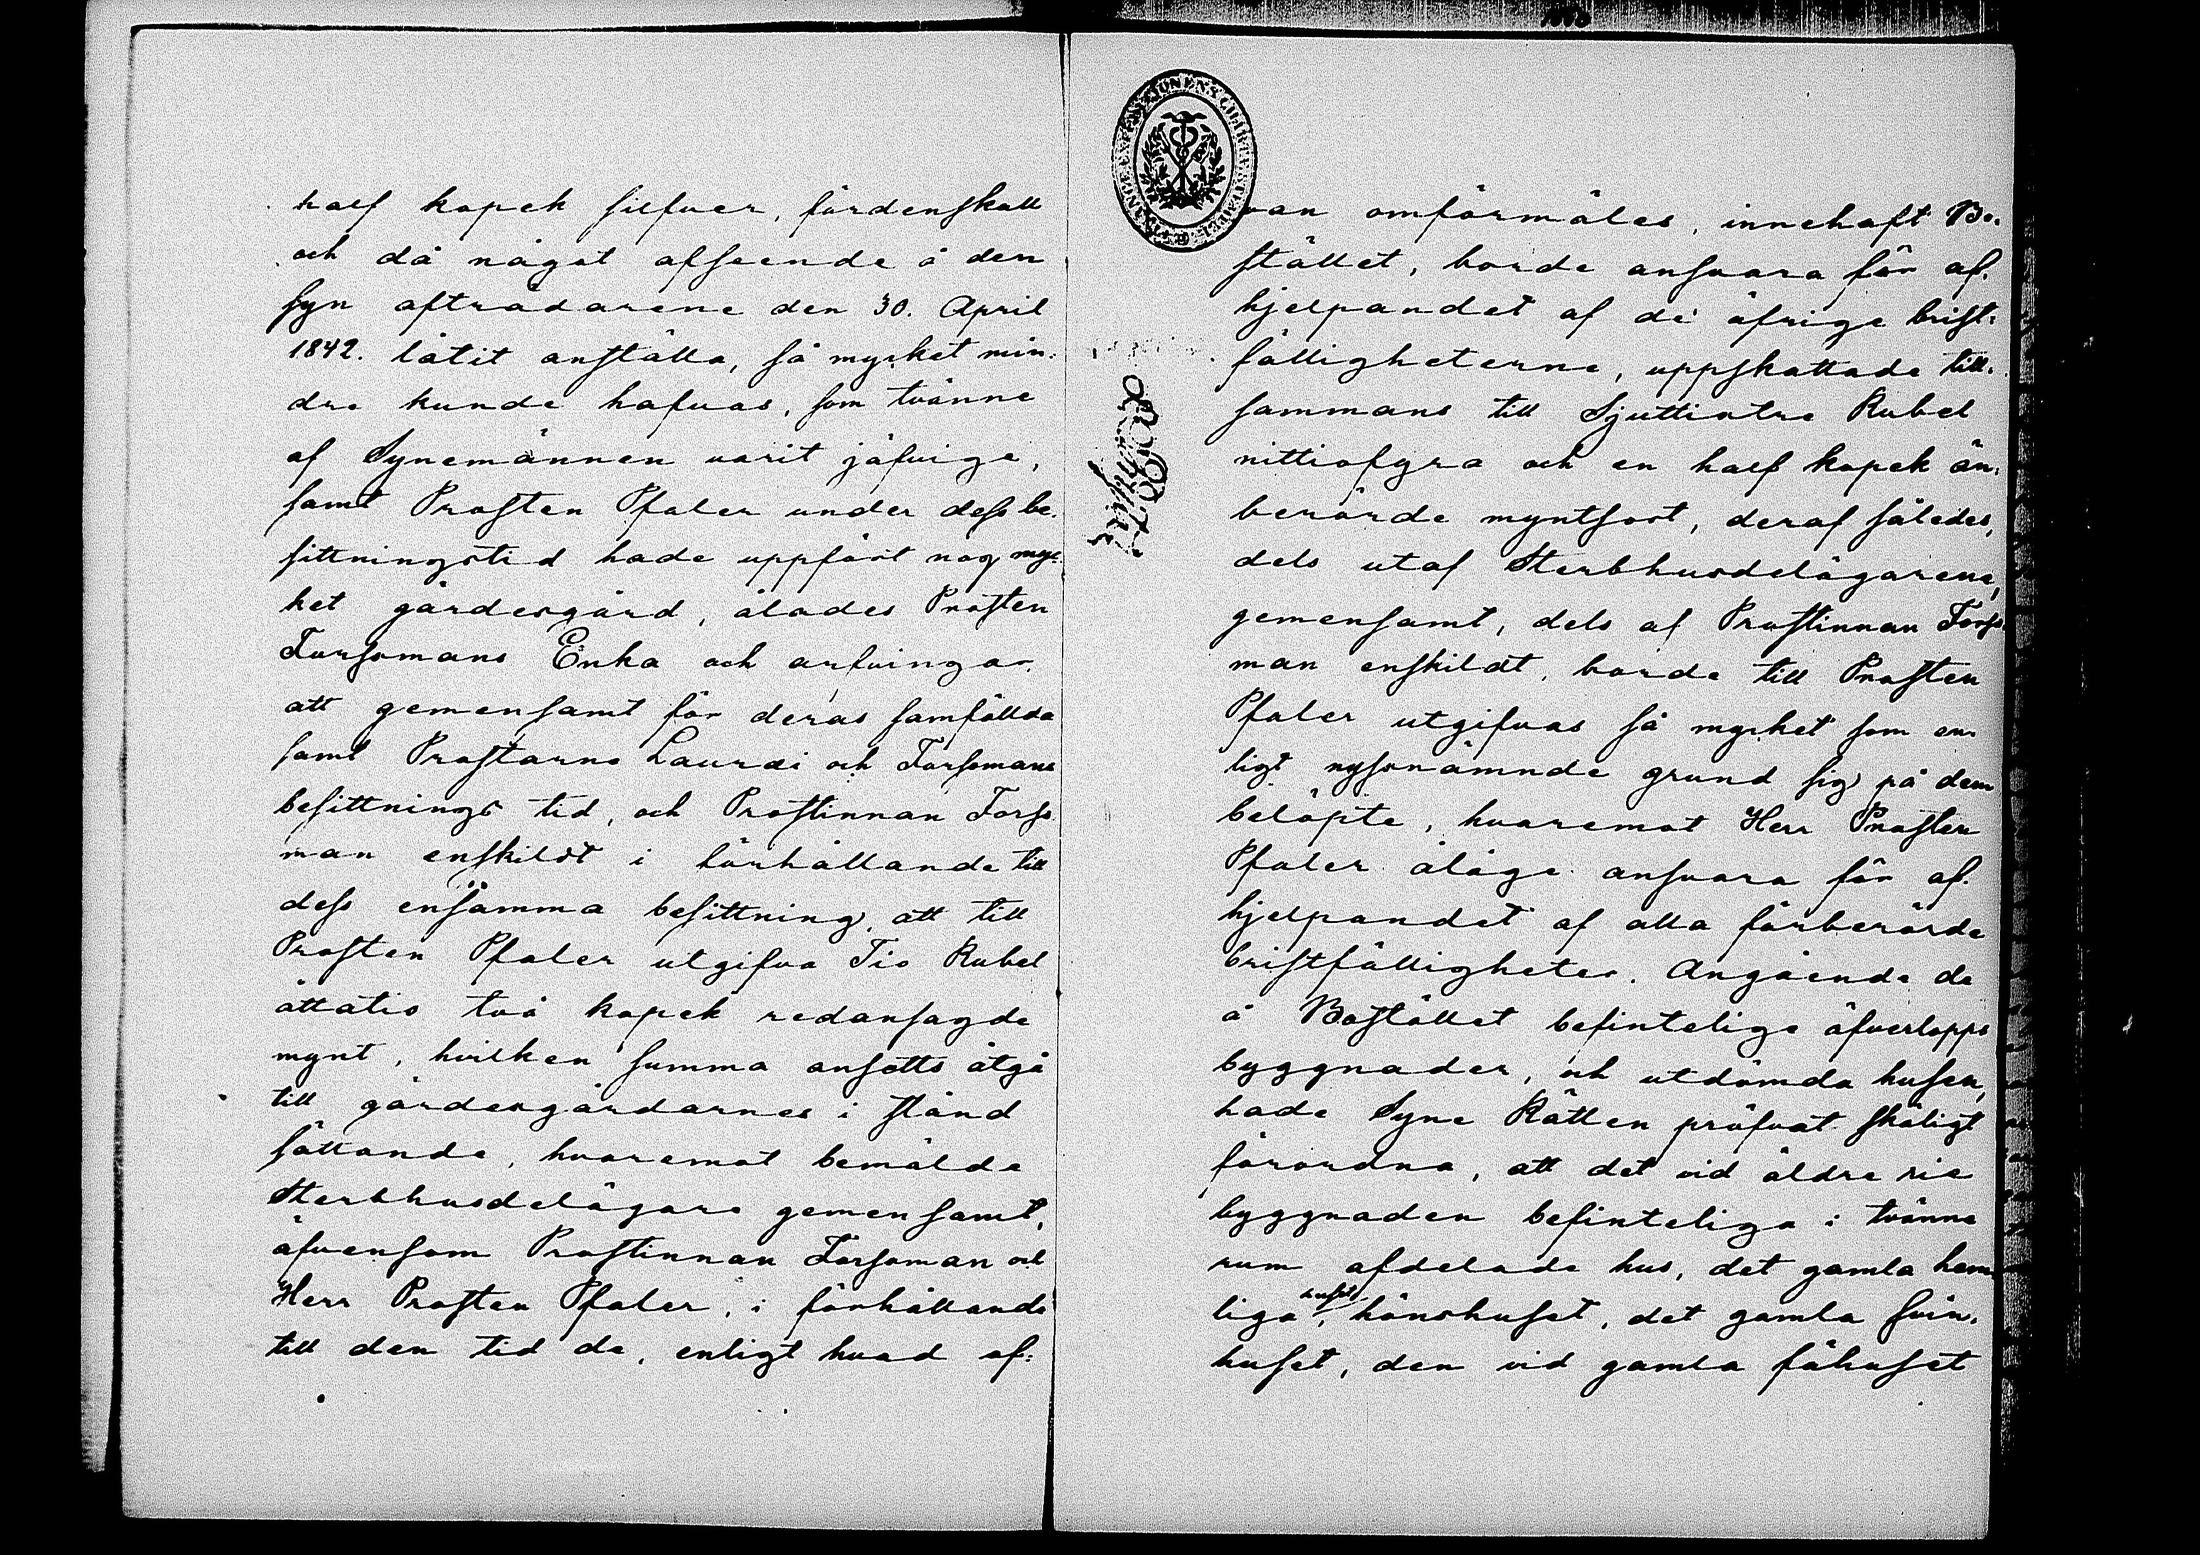 half kopek silfver, fördenskull
och då något afseende å den
syn afträdarene den 30. April
1842. låtit anställa, så mycket min-
dre kunde hafvas, som tvänne
af Synemännen varit jäfvige,
samt Prosten Pfaler under dess be-
sittningstid hade uppfört nog myc-
ket gärdesgård, ålades Prosten
Forssmans Enka och arfvingar
att gemensamt för deras samfällda
samt Prostarne Laurdi och Forssmans
besittnings tid, och Prostinnan Forss-
man enskildt i förhållande till
dess ensamma besittning, att till
Prosten Pfaler utgifva Tio Rubel
åttatio två kopek redansagde
mynt, hvilken summa ansetts åtgå
till gärdesgårdarnes i stånd
sättande, hvaremot bemälde
Sterbhusdelägare gemensamt,
äfvensom Prostinnan Forssman och
Herr Prosten Pfaler, i förhållande
till den tid de, enligt hvad of-
van omförmäles, innehaft Bo-
stället, borde ansvara för af-
hjelpandet af de öfrige brist-
fälligheterne, uppskattade till-
sammans till Sjuttiotre Rubel
nittiofyra och en half kopek än-
berörde myntsort, deraf således,
dels utaf Sterbhusdelägarene,
gemensamt, dels af Prostinnan Forss-
man enskildt, borde till Prosten
Pfaler utgifvas så mycket som en-
ligt nyssnämnde grund sig på dem
belöpte, hvaremot Herr Prosten
Pfaler ålåge ansvara för af-
hjelpandet af alla förberörde
bristfälligheter. Angående de
å Bostället befintelige öfverlopps
byggnader, och utdömda husen,
hade Syne Rätten pröfvat skäligt
förordna, att det vid äldre rie
byggnaden befinteliga i tvänne
rum afdelade hus, det gamla hem-
liga huset, hönshuset, det gamla svin-
huset, den vid gamla fähuset